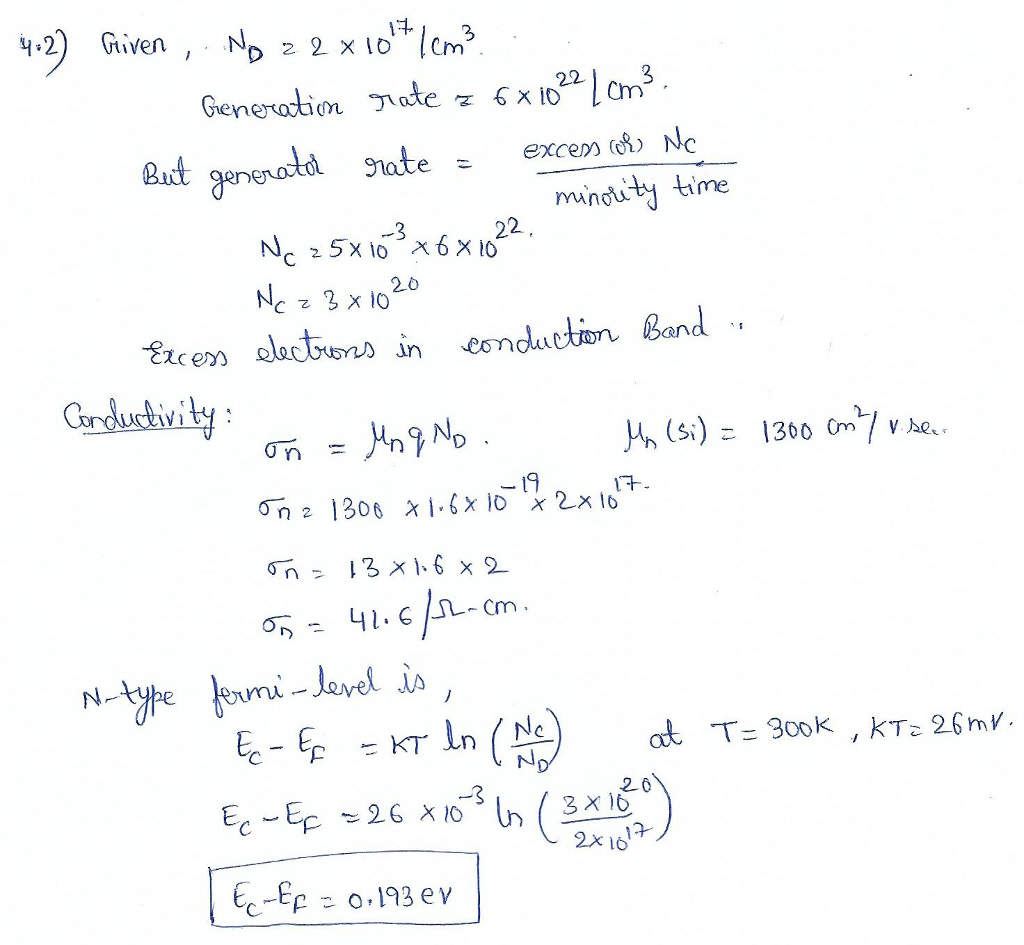 4.2) Given, N_D = 2 × 10^17 /cm^3.
Generation rate = 6×10^22 / cm^3.
But generator rate = excess (or) N_C / minority time
N_C = 5×10^-3 × 6×10^22.
N_C = 3 × 10^20
Excess electrons in conduction Band ..
Conductivity:
σn = μn q N_D. μn (Si) = 1300 cm^2/ v.sec.
σn = 1300 × 1.6×10^-19 × 2×10^17.
σn = 13 × 1.6 × 2
σn = 41.6 /Ω-cm.
N-type fermi-level is,
E_C - E_F = KT ln (N_C/N_D) at T= 300K, KT= 26mv.
E_C - E_F = 26 × 10^-3 ln (3×10^20 / 2×10^17)
E_C-E_F = 0.193 ev